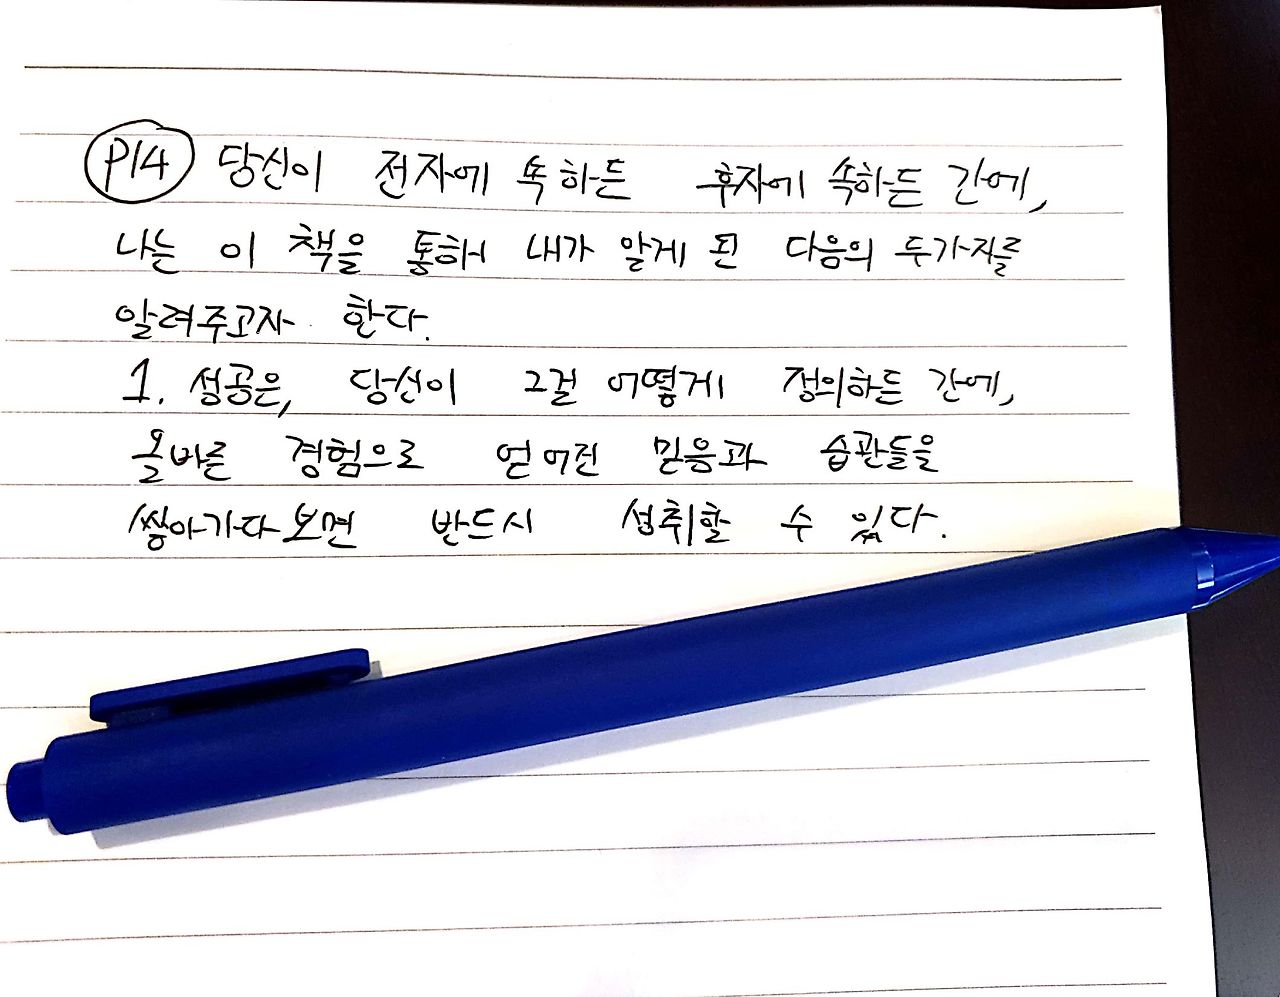 P14 당신이 전자에 속하든 후자에 속하든 간에,
나는 이 책을 통해 내가 알게 된 다음의 두가지를
알려주고자 한다.
1. 성공은, 당신이 그걸 어떻게 정의하든 간에,
올바른 경험으로 얻어진 믿음과 습관들을
쌓아가다보면 반드시 성취할 수 있다.